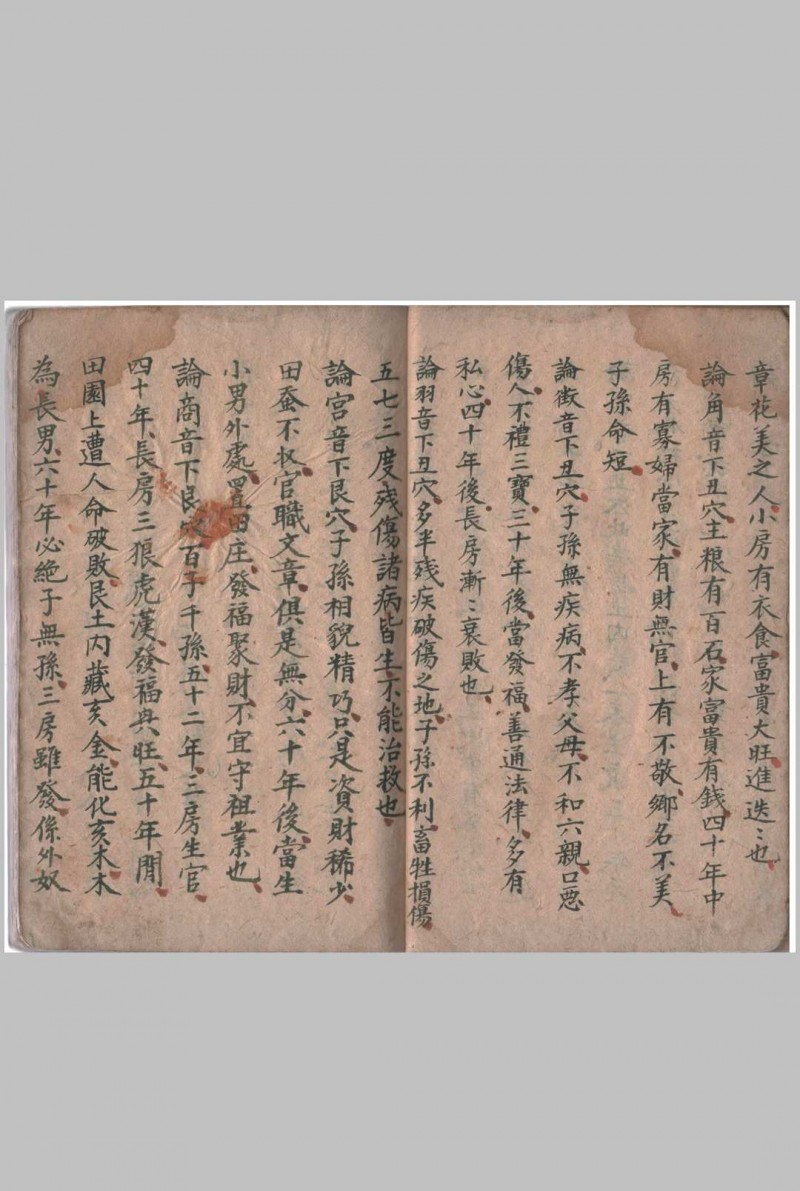 章花美之人小房有衣食富貴大旺進迭〻也
論角音下丑穴主粮有百石家富貴有錢四十年中
房有寡婦當家有財無官上有不敬鄉名不美
子孫命短
論徵音下丑穴子孫無疾病不孝父母不和六親口惡
傷人不禮三寶三十年後當發福善通法律多有
私心四十年後長房漸〻衰敗也
論羽音下丑穴多半残疾破傷之地子孫不利畜牲損傷
五七三度残傷諸病皆生不能治救也
論宮音下艮穴子孫相貌精巧只是資財稀少
田蚕不收官職文章俱是無分六十年後當生
小男外處置田庄發福聚財不宜守祖業也
論商音下艮穴百子千孫五十二年三房生官
四十年長房三狼虎漢發福兴旺五十年閒
田園上遭人命破敗艮土内藏亥金能化亥木木
為長男六十年必絶子無孫三房雖發係外奴